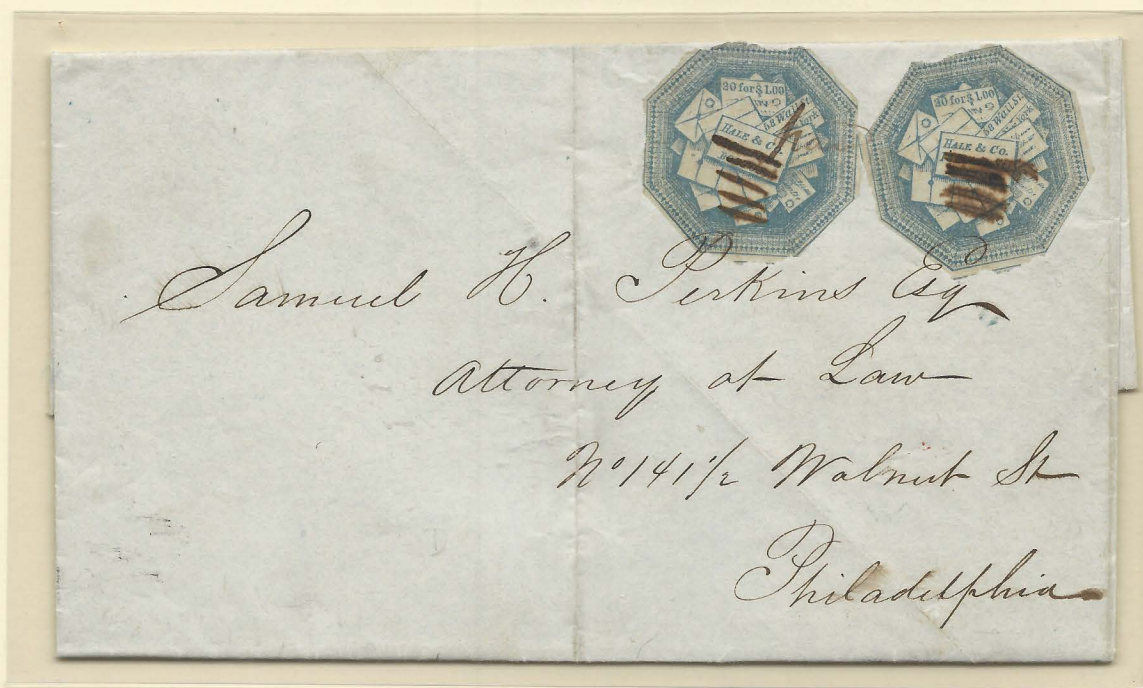 20 for $1.00
52 Wall St
York
HALE & Co.
20 for $1.00
52 Wall St
York
HALE & Co.
Samuel H. Perkins Esq
Attorney at Law
No 141 1/2 Walnut St
Philadelphia